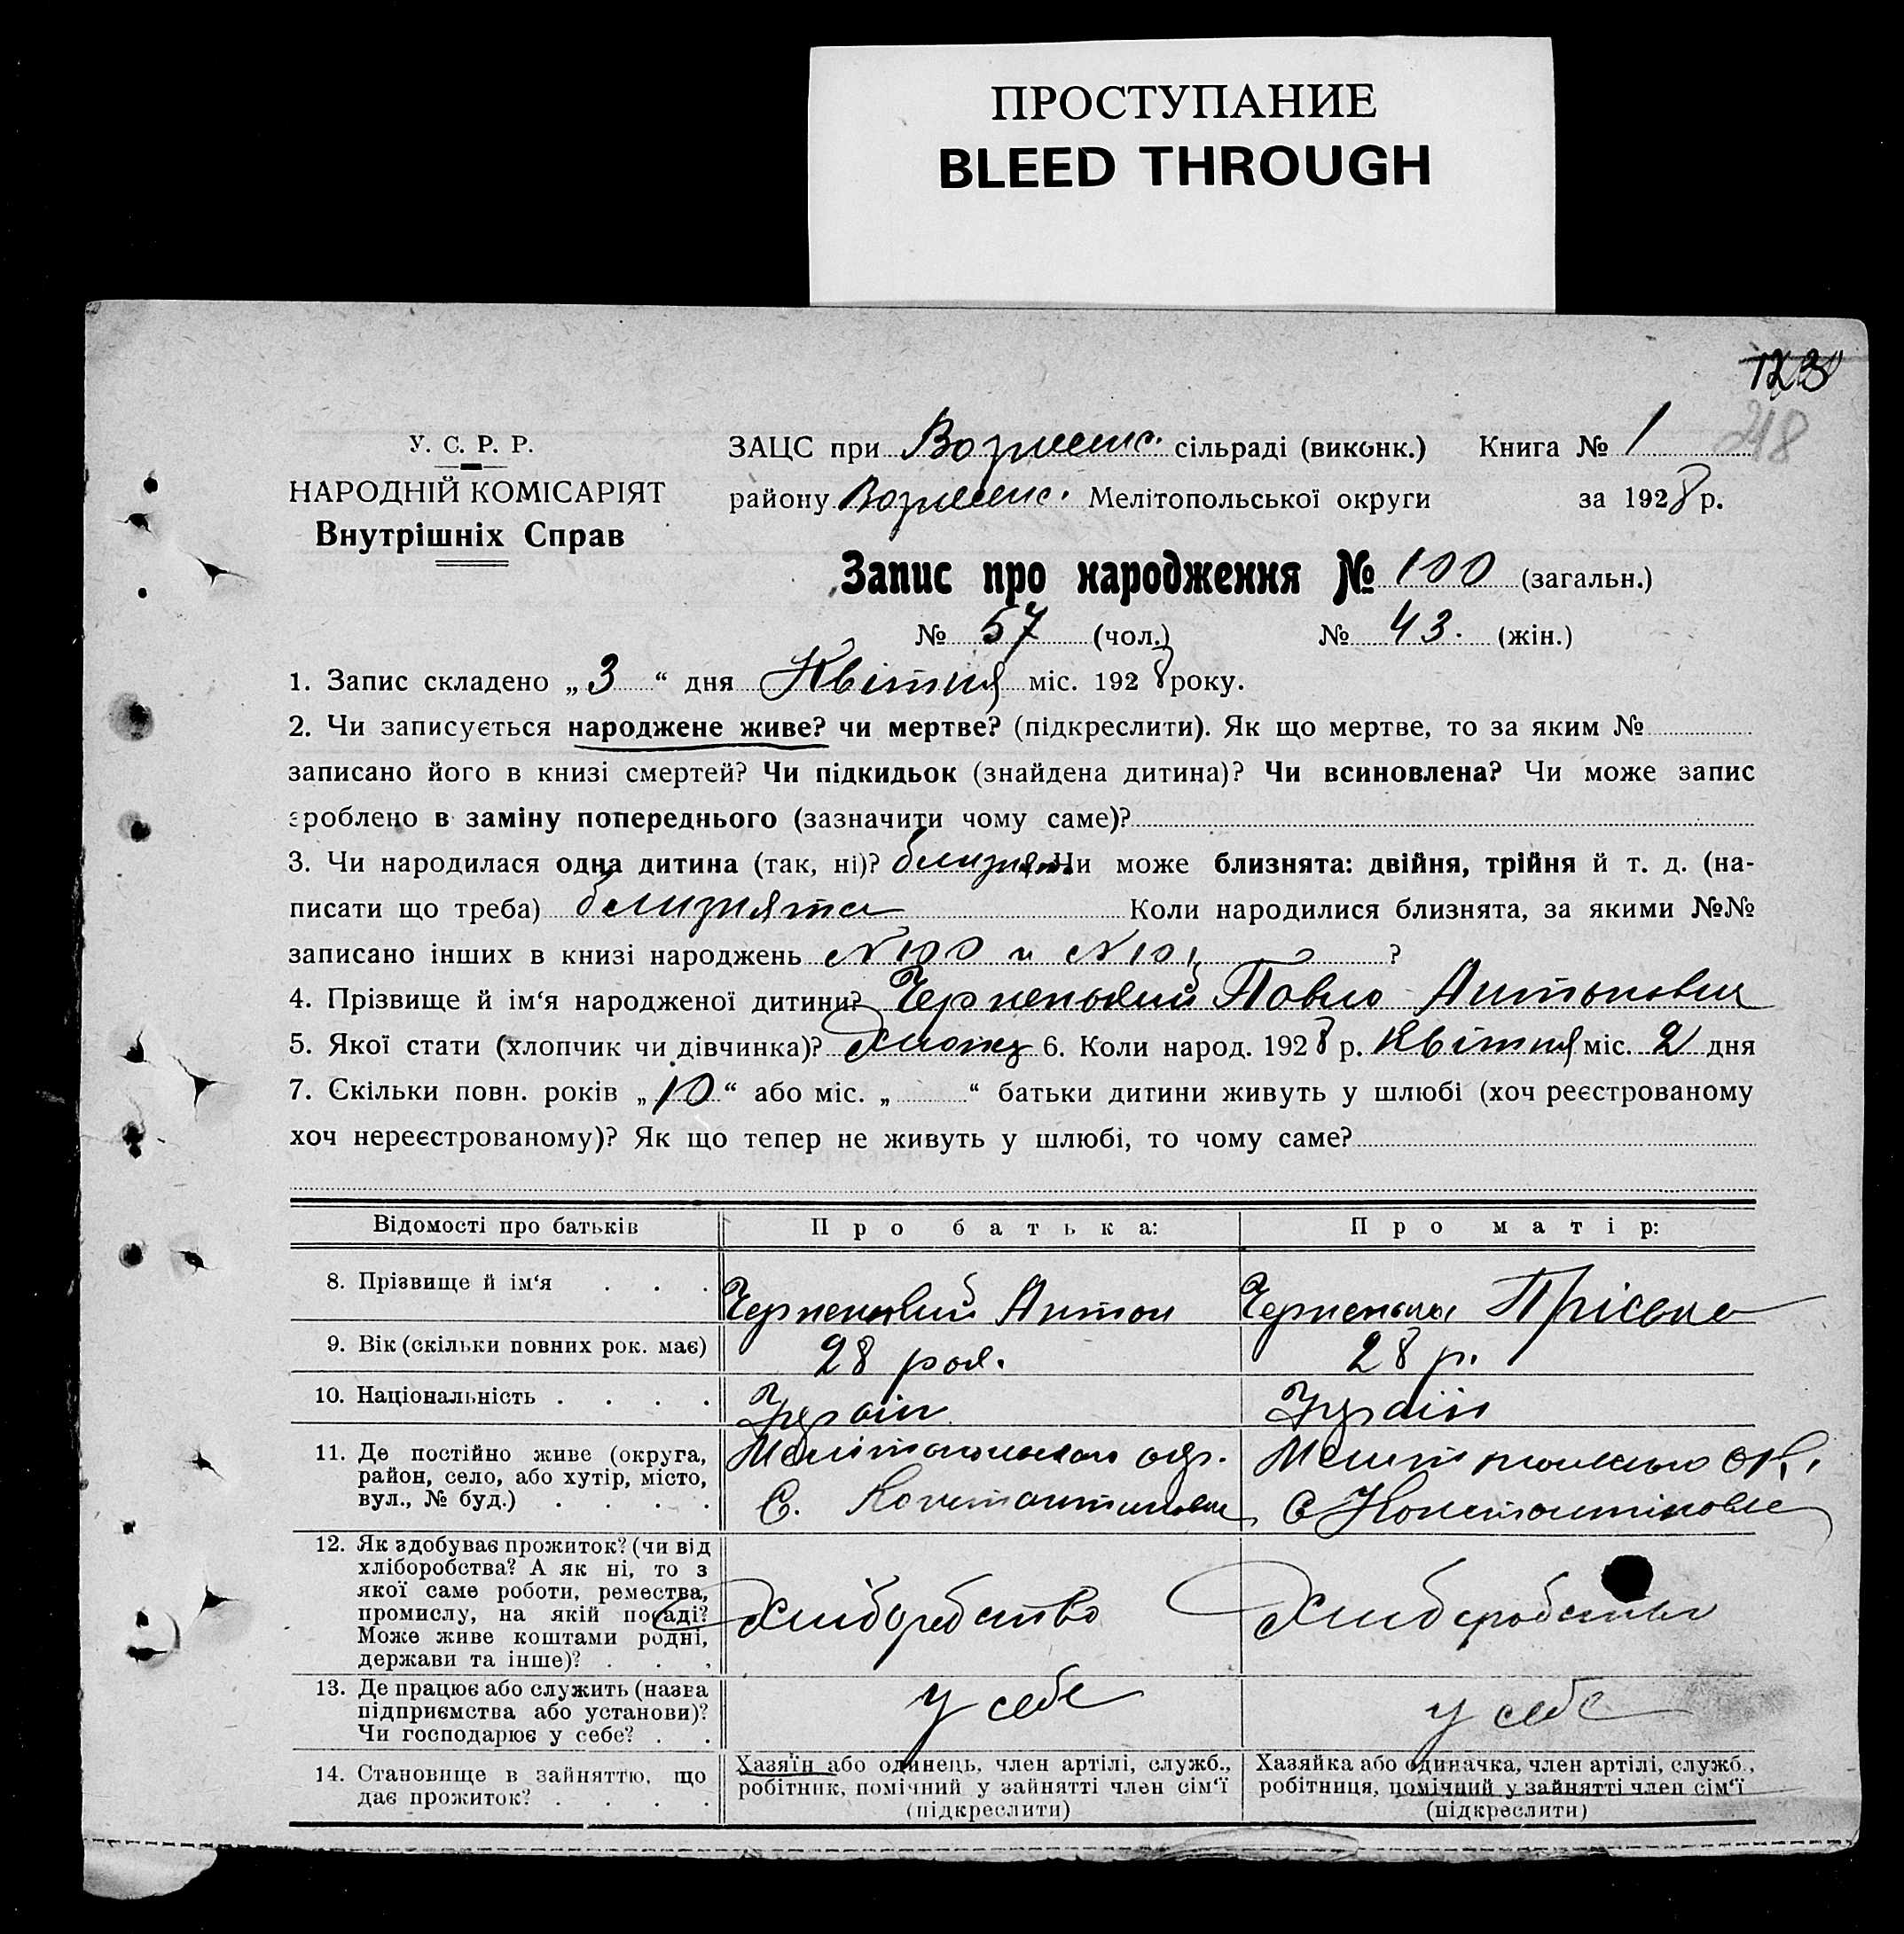 ПРОСТУПАНИЕ
BLEED THROUGH
123
218
У. С. Р. Р.
НАРОДНІЙ КОМІСАРІЯТ
Внутрішніх Справ
ЗАЦС при Вознесенс. сільраді (виконк.) Книга № 1
району Вознесенс. Мелітопольської округи за 1928 р.
Запис про народження № 100 (загальн.)
№ 57 (чол.) № 43. (жін.)
1. Запис складено „3“ дня Квітня міс. 1928 року.
2. Чи записується народжене живе? чи мертве? (підкреслити). Як що мертве, то за яким №
записано його в книзі смертей? Чи підкидьок (знайдена дитина)? Чи всиновлена? Чи може запис
зроблено в заміну попереднього (зазначити чому саме)?
3. Чи народилася одна дитина (так, ні)? близнята Чи може близнята: двійня, трійня й т. д. (на-
писати що треба) близнята Коли народилися близнята, за якими №№
записано інших в книзі народжень №100 и №101 ?
4. Прізвище й ім‘я народженої дитини? Павло Антонович
5. Якої стати (хлопчик чи дівчинка)? Хлопец 6. Коли народ. 1928 р. Квітня міс. 2 дня
7. Скільки повн. років „10“ або міс. „ “ батьки дитини живуть у шлюбі (хоч реєстрованому
хоч нереєстрованому)? Як що тепер не живуть у шлюбі, то чому саме?
Відомості про батьків Про батька: Про матір:
8. Прізвище й ім‘я . . . Антон
9. Вік (скільки повних рок. має) 28 рок. 28 р.
10. Національність . . . . Україн Україн
11. Де постійно живе (округа,
район, село, або хутір, місто,
вул., № буд.) . . . .
Мелітопольского окр.
С. Константиновка
Мелитопольско окр.
С Константіновке
12. Як здобуває прожиток? (чи від
хліборобства? А як ні, то з
якої саме роботи, ремества,
промислу, на якій посаді?
Може живе коштами родні,
держави та інше)? . . .
Хліборобство
Хлиборобство
13. Де працює або служить (назва
підприємства або установи)?
Чи господарює у себе? . .
у себе
у себе
14. Становище в зайняттю, що
дає прожиток? . . . .
Хазяїн або одинець, член артілі, служб.,
робітник, помічний у зайнятті член сім‘ї
(підкреслити)
Хазяйка або одиначка, член артілі, служб.,
робітниця, помічний у зайнятті член сім‘ї
(підкреслити)